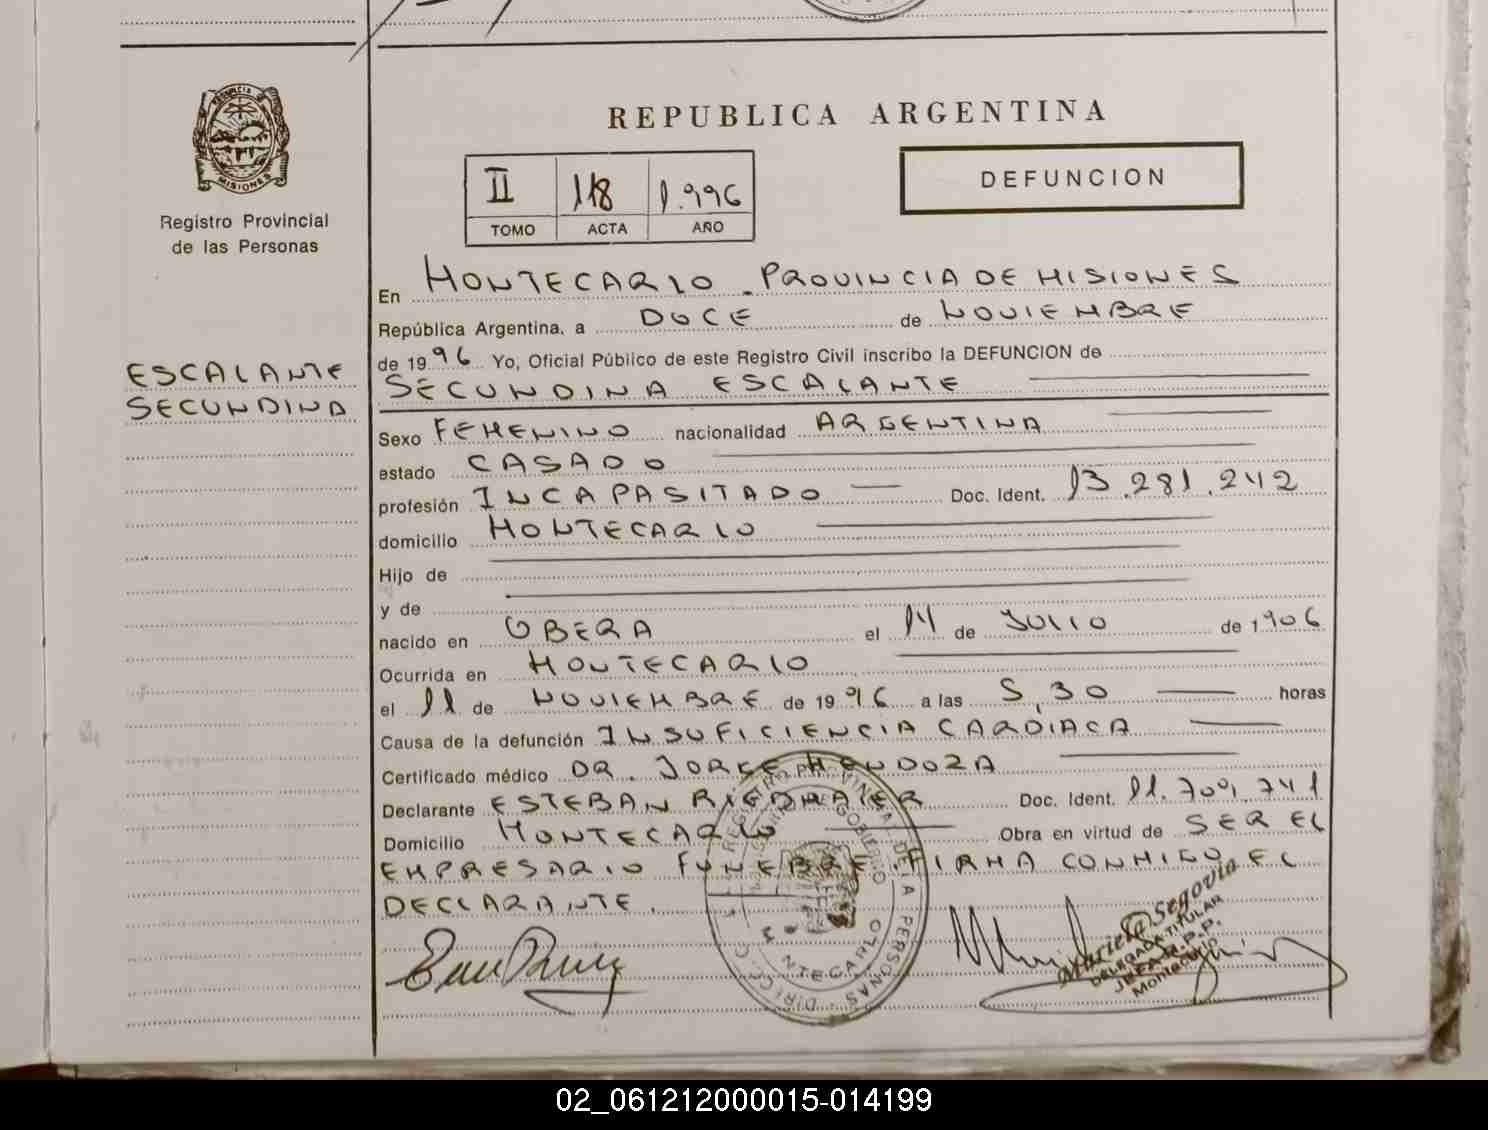 REPUBLICA ARGENTINA
PROVINCIA
MISIONES
Registro Provincial
de las Personas
II 118 1.996
TOMO ACTA AÑO
DEFUNCION
En MONTECARLO - PROVINCIA DE MISIONES
República Argentina, a DOCE de NOVIEMBRE
de 1996 Yo, Oficial Público de este Registro Civil inscribo la DEFUNCION de
SECUNDINA ESCALANTE
ESCALANTE
SECUNDINA
Sexo FEMENINO nacionalidad ARGENTINA
estado CASADO
profesión INCAPASITADO Doc. Ident. 13.281.242
domicilio MONTECARLO
Hijo de
y de
nacido en OBERA el 14 de JULIO de 1906
Ocurrida en MONTECARLO
el 11 de NOVIEMBRE de 1996 a las 5,30 horas
Causa de la defunción INSUFICIENCIA CARDIACA
Certificado médico DR. JORGE MENDOZA
Declarante ESTEBAN RIEDMAIER Doc. Ident. 11.700.741
Domicilio MONTECARLO Obra en virtud de SER EL
EMPRESARIO FUNEBRE FIRMA CONMIGO EL
DECLARANTE.
Mariela Segovia
DELEGADA TITULAR
Montecarlo
02_061212000015-014199